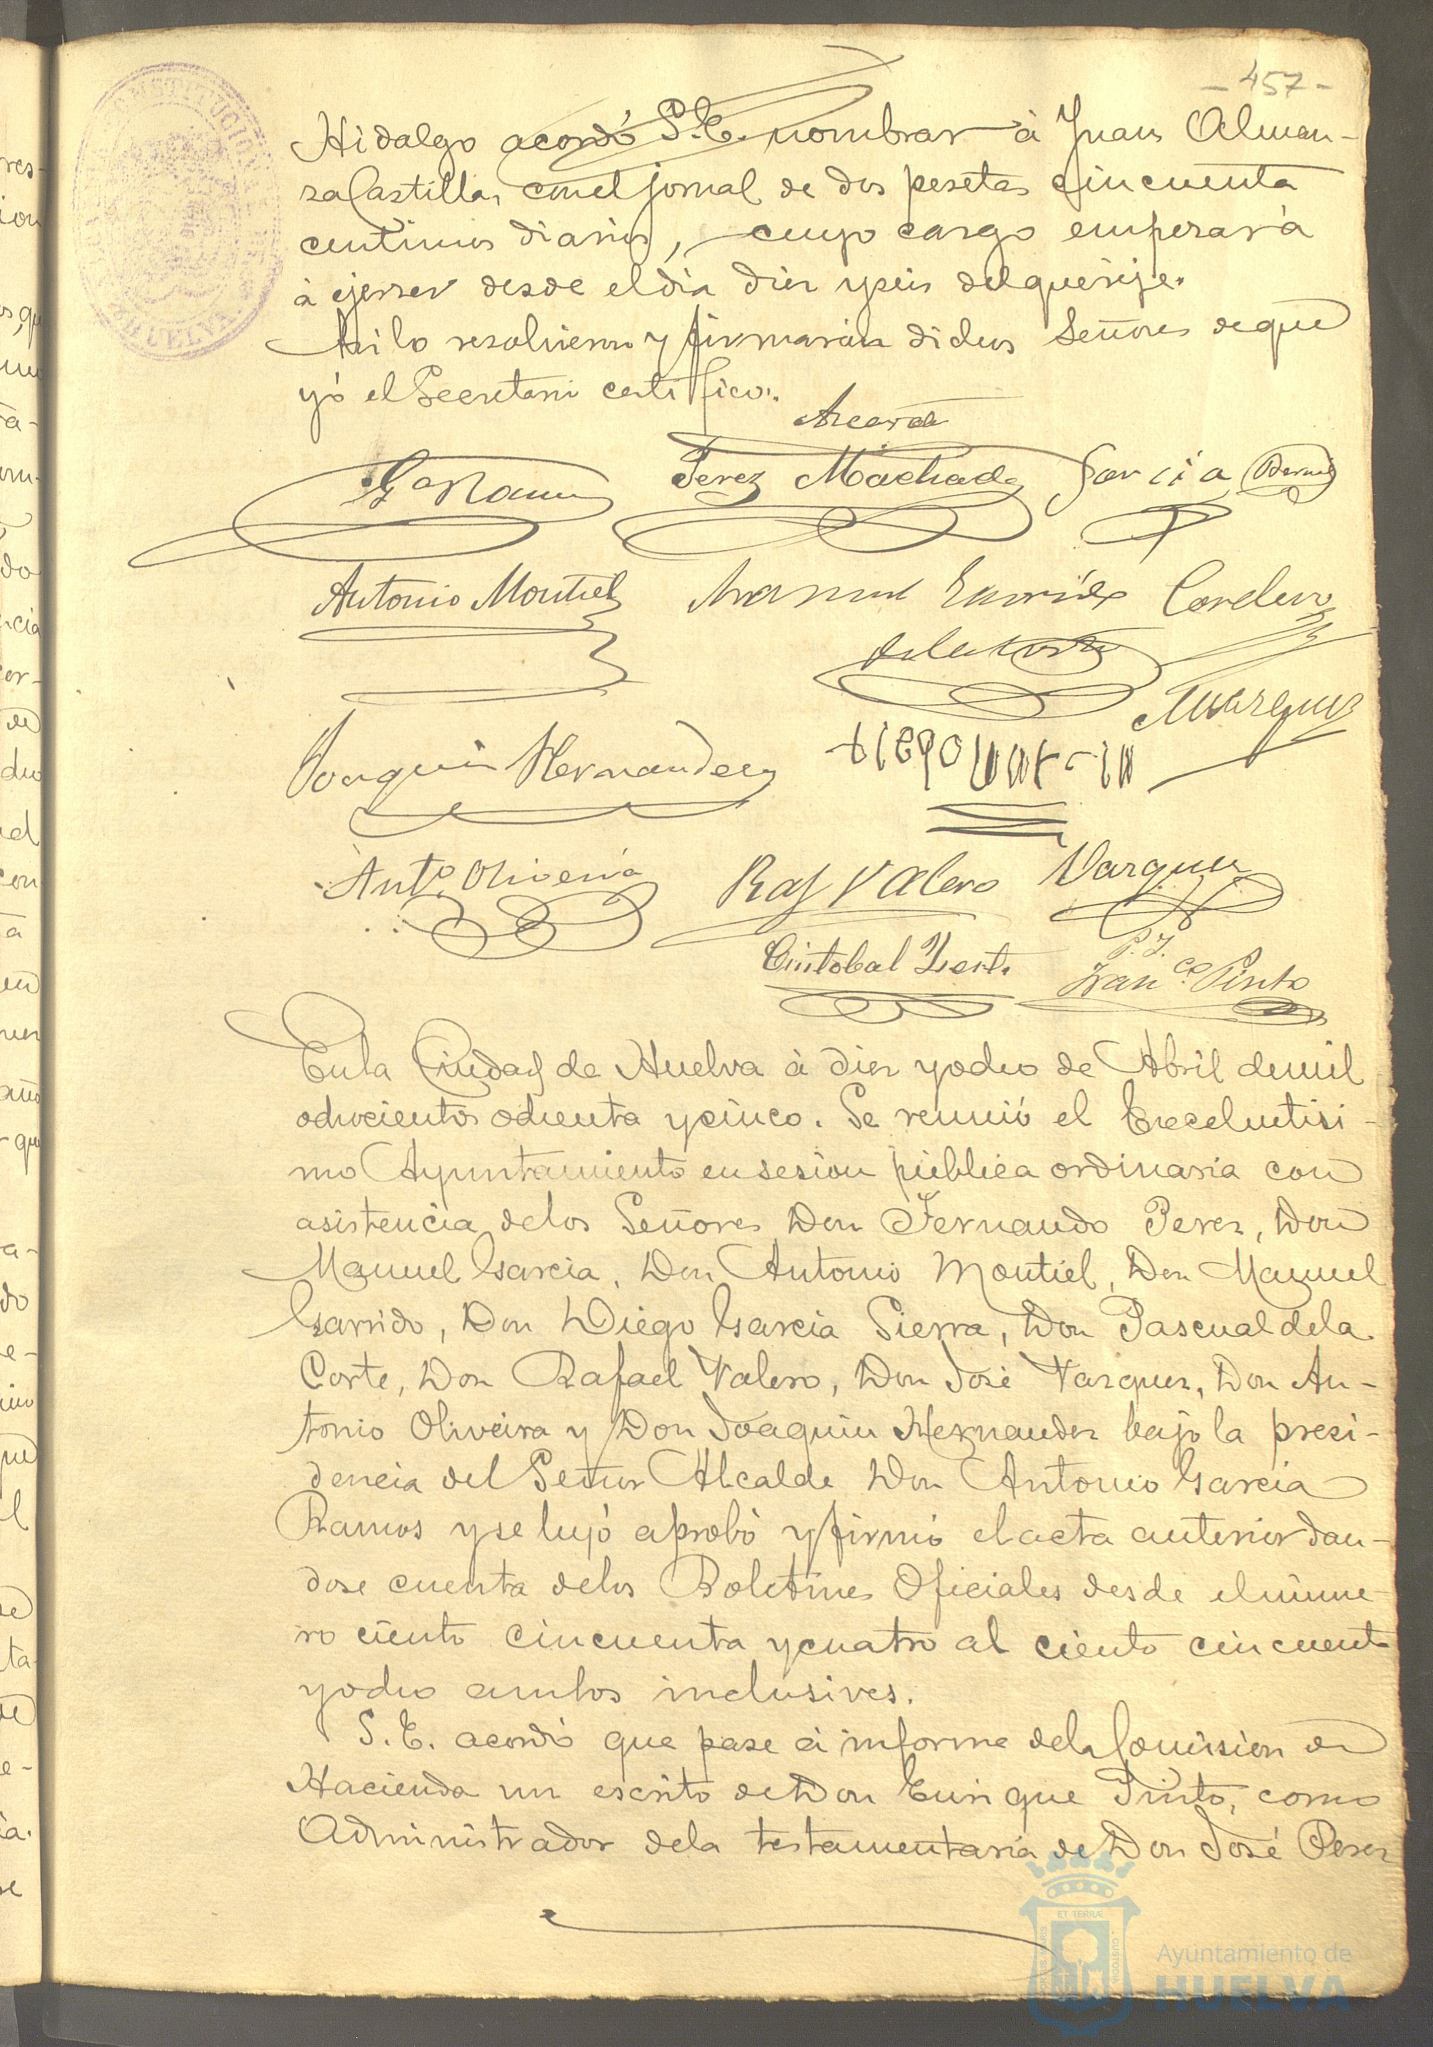 - 457 -
Hidalgo acordó S.E. nombrar à Juan Alman-
sa Castilla, con el jornal de dos pesetas cincuenta
centimos diarios, cuyo cargo empezará
à ejerser desde el dia diez y seis del que rije.
Asi lo resolvieron y firmarán dichos Señores de que
yó el Secretario certifico.
Gª Ramos Perez Machado Garcia
Antonio Montiel Manuel Garrido Cordero
de la Corte
Marquez
Joaquin Hernandez
Antº Oliveira Raf Valero Vazquez
Cristobal P.I.
Francº Pinto
En la Ciudad de Huelva à diez y ocho de Abril de mil
ochocientos ochenta y cinco. Se reunió el Excelentisi-
mo Ayuntamiento en sesion pública ordinaria con
asistencia de los Señores Don Fernando Perez, Don
Manuel Garcia, Don Antonio Montiel, Don Manuel
Garrido, Don Diego Garcia Sierra, Don Pascual de la
Corte, Don Rafael Valero, Don José Vazquez, Don An-
tonio Oliveira y Don Joaquin Hernandez bajo la presi-
dencia del Señor Alcalde Don Antonio Garcia
Ramos y se leyó aprobó y firmó el acta anterior dan-
dose cuenta de los Boletines Oficiales desde el núme-
ro ciento cincuenta y cuatro al ciento cincuenta
y ocho ambos inclusives.
S.E. acordó que pase à informe de la Comision de
Hacienda un escrito de Don Enrique Pinto, como
Administrador de la testamentaria de Don José Perez
Ayuntamiento de
HUELVA